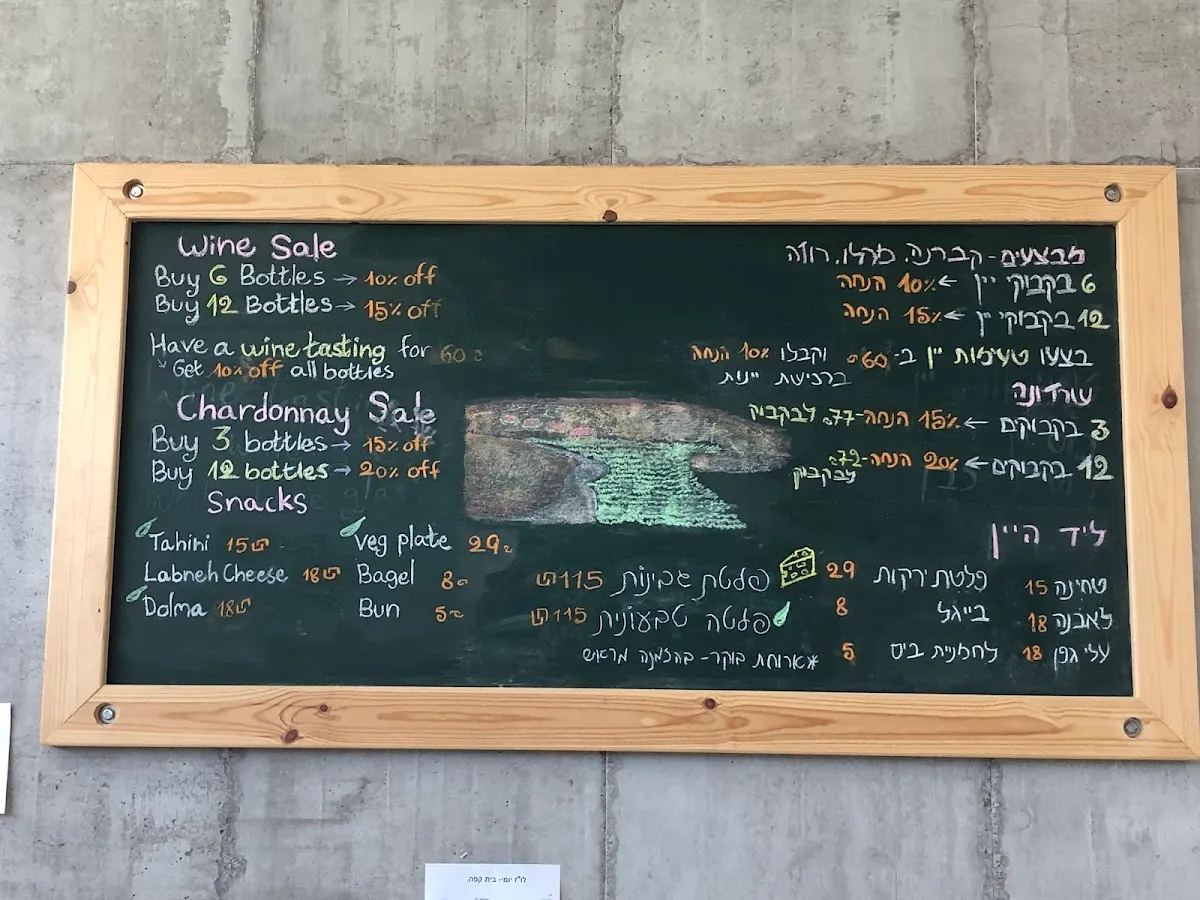 Wine Sale
Buy 6 Bottles → 10% off
Buy 12 Bottles → 15% off
Have a wine tasting for 60₪
Get 10% off all bottles
Chardonnay Sale
Buy 3 bottles → 15% off
Buy 12 bottles → 20% off
Snacks
Tahini 15₪
Labneh Cheese 18₪
Dolma 18₪
Veg plate 29₪
Bagel 8₪
Bun 5₪
מבצעים - קברנה, מרלו, רוזה
6 בקבוקי יין ← 10% הנחה
12 בקבוקי יין ← 15% הנחה
בצעו טעימות יין ב- 60₪ וקבלו 10% הנחה
ברכישת יינות
שרדונה
3 בקבוקים ← 15% הנחה - 77₪ לבקבוק
12 בקבוקים ← 20% הנחה - 72₪
לבקבוק
ליד היין
טחינה 15
לאבנה 18
עלי גפן 18
פלטת ירקות 29
בייגל 8
לחמנית ביס 5
פלטת גבינות 115₪
פלטה טבעונית 115₪
*ארוחת בוקר - בהזמנה מראש
לו"ז יומי- בית קפה.